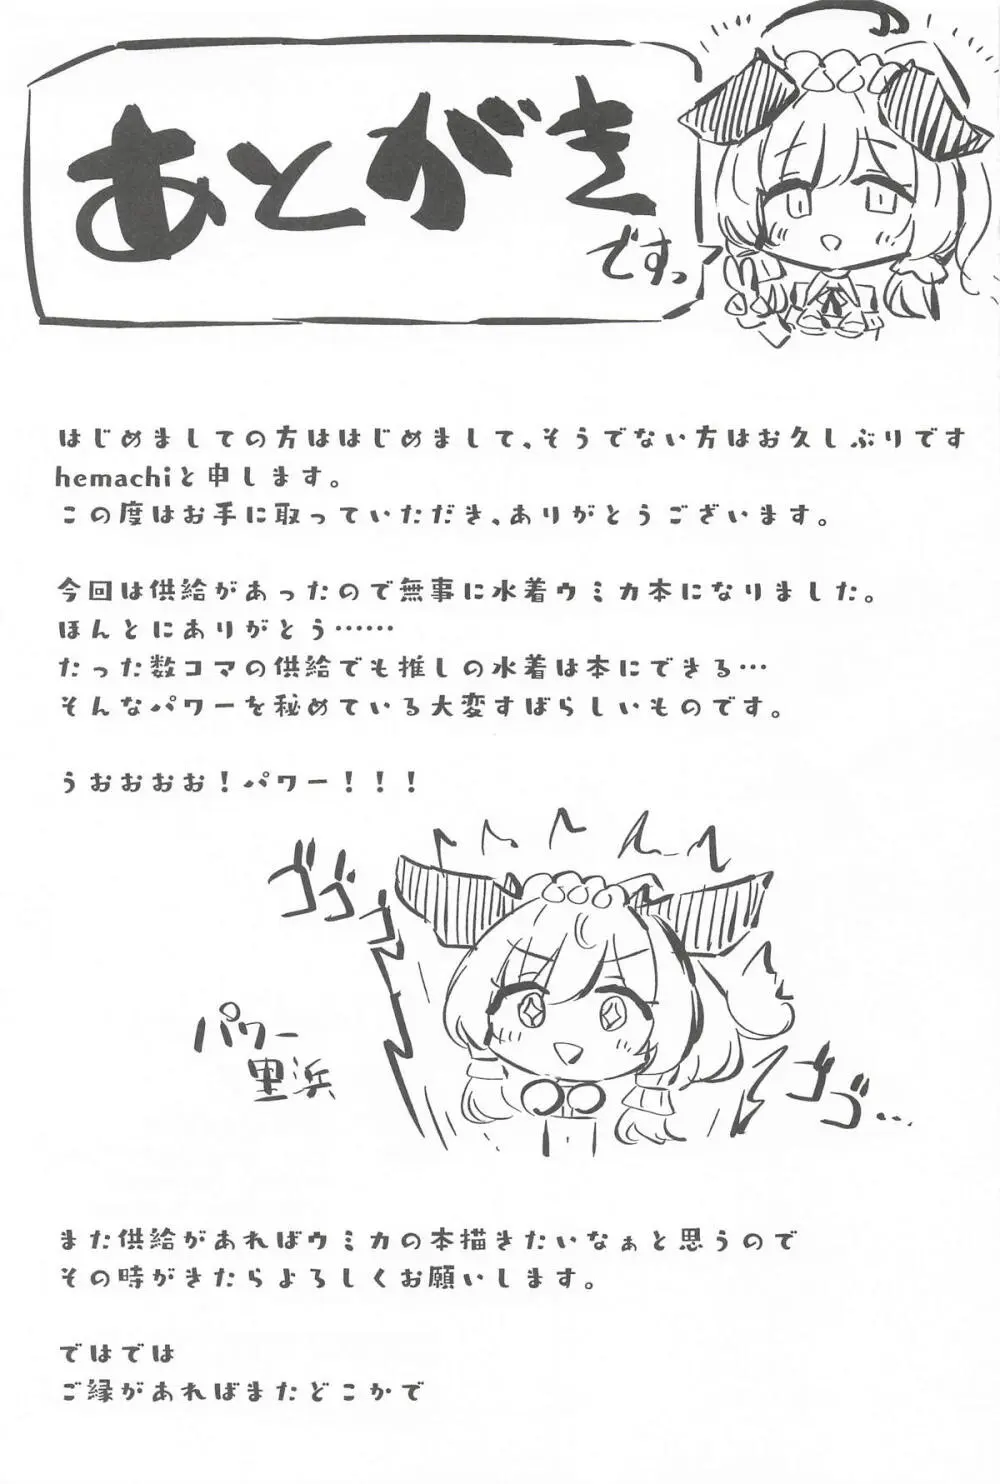 あとがき
ですっ
はじめましての方ははじめまして、そうでない方はお久しぶりです
hemachiと申します。
この度はお手に取っていただき、ありがとうございます。
今回は供給があったので無事に水着ウミカ本になりました。
ほんとにありがとう……
たった数コマの供給でも推しの水着は本にできる…
そんなパワーを秘めている大変すばらしいものです。
うおおおお！パワー！！！
ゴゴゴ
パワー
里浜
ゴゴ…
また供給があればウミカの本描きたいなぁと思うので
その時がきたらよろしくお願いします。
ではでは
ご縁があればまたどこかで